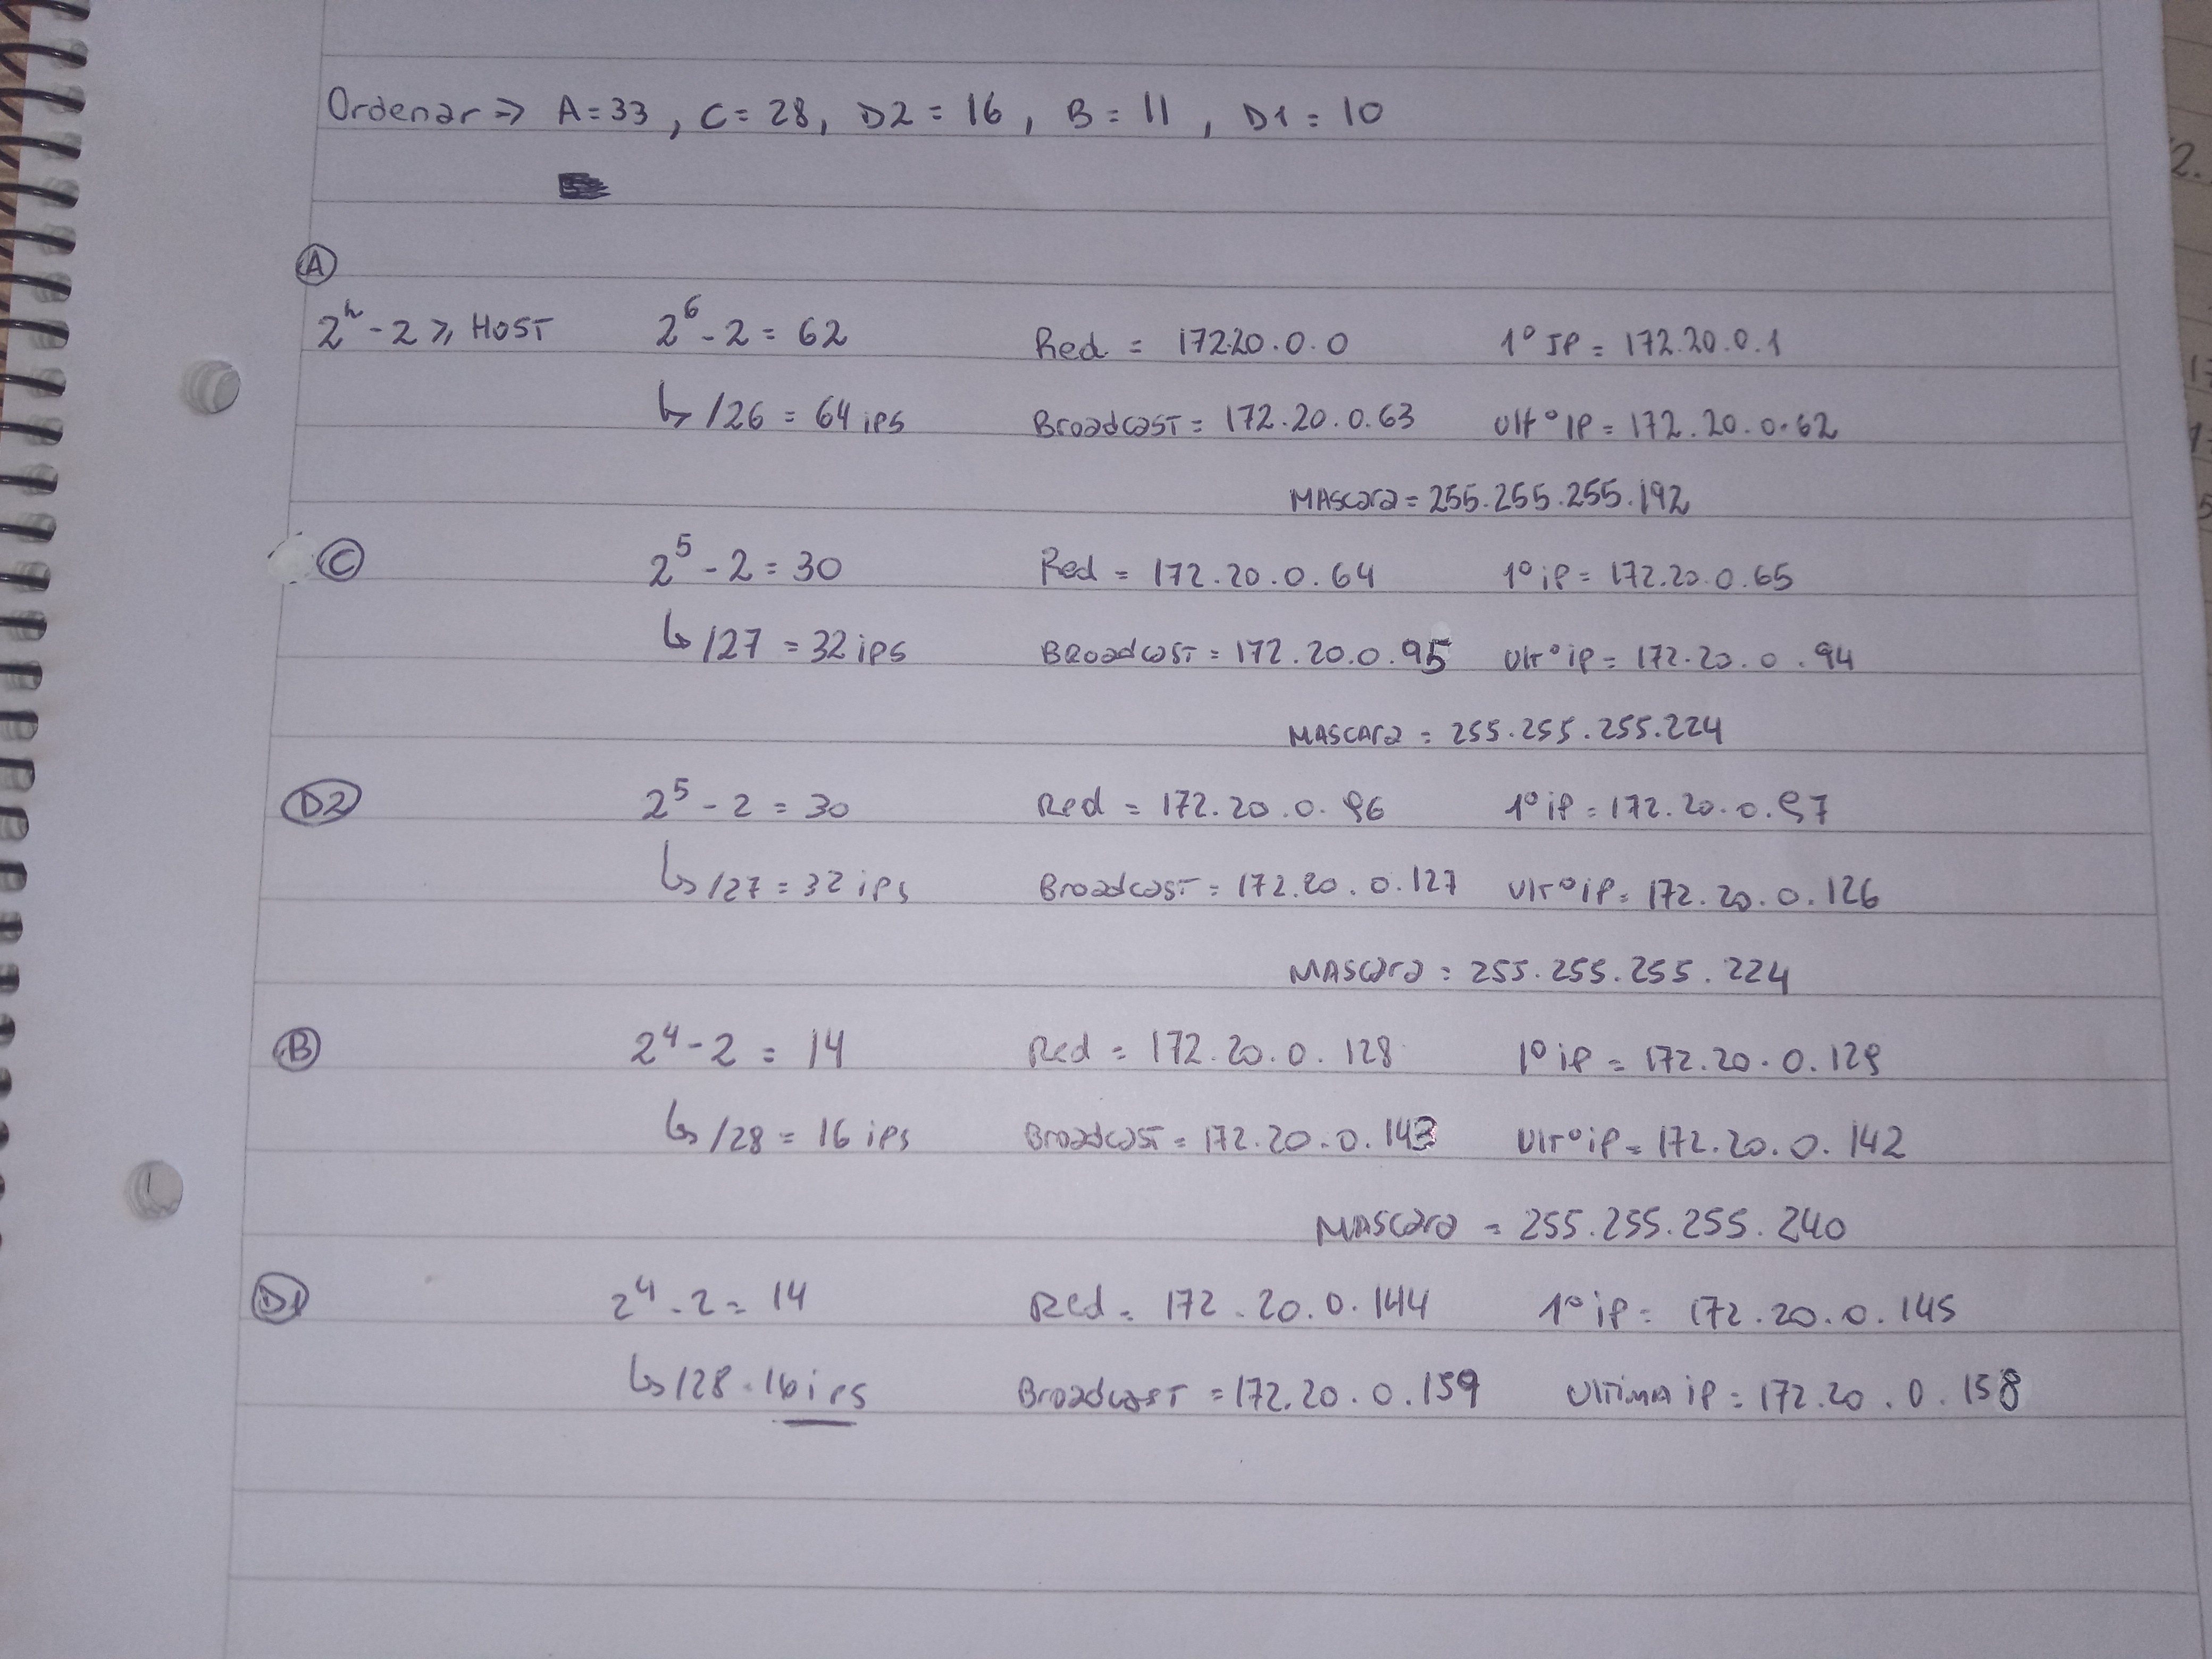 Ordenar => A=33, C=28, D2=16, B=11, D1=10
A
2^n - 2 ≥ HOST 2^6 - 2 = 62 Red = 172.20.0.0 1º IP = 172.20.0.1
↳ /26 = 64 ips Broadcast = 172.20.0.63 Ultº IP = 172.20.0.62
MAscara = 255.255.255.192
C 2^5 - 2 = 30 Red = 172.20.0.64 1º ip = 172.20.0.65
↳ /27 = 32 ips BRoadcast = 172.20.0.95 Ultº ip = 172.20.0.94
MASCARa = 255.255.255.224
D2 2^5 - 2 = 30 Red = 172.20.0.96 1º ip = 172.20.0.97
↳ /27 = 32 ips Broadcast = 172.20.0.127 Ultº ip = 172.20.0.126
MAScara = 255.255.255.224
B 2^4 - 2 = 14 Red = 172.20.0.128 1º ip = 172.20.0.129
↳ /28 = 16 ips Broadcast = 172.20.0.143 Ultº ip = 172.20.0.142
MAScara = 255.255.255.240
D1 2^4 - 2 = 14 Red = 172.20.0.144 1º ip = 172.20.0.145
↳ /28 = 16 ips Broadcast = 172.20.0.159 Ultima ip = 172.20.0.158